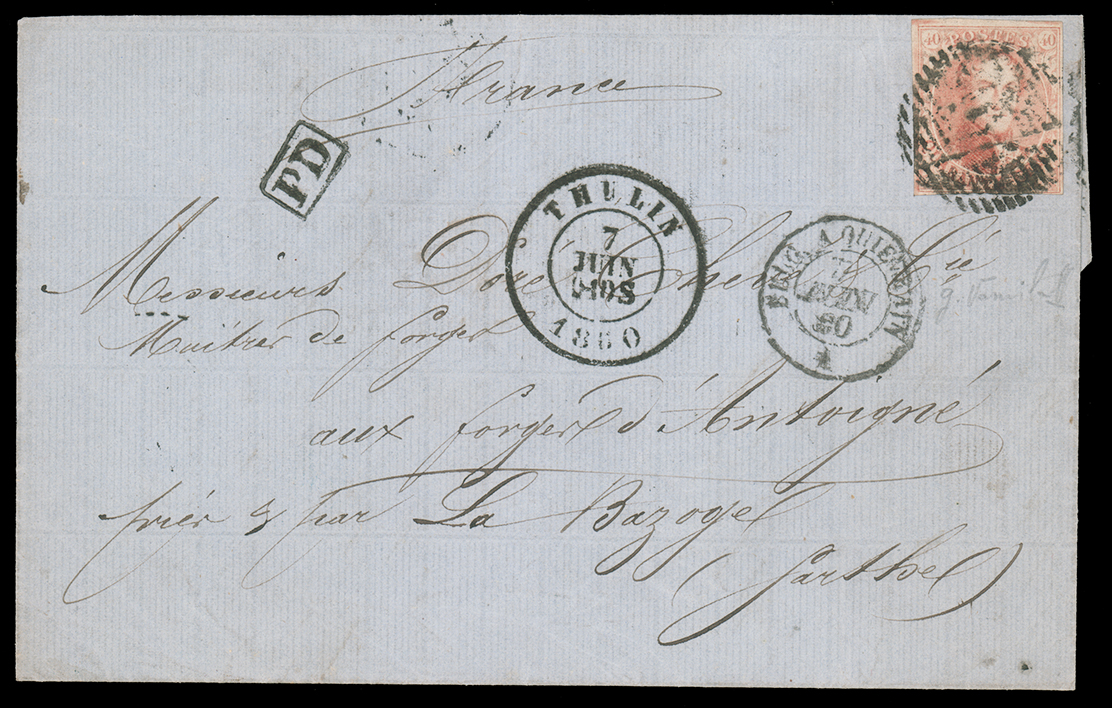 France
40 POSTES 40
PD
THULIN
7
JUIN
1860
BELG. A QUIEVRAIN
7
JUIN
60
Messieurs Doré Chel Cie
Maîtres de forges
aux forges d'Antoigné
près & par La Bazoge
(Sarthe)